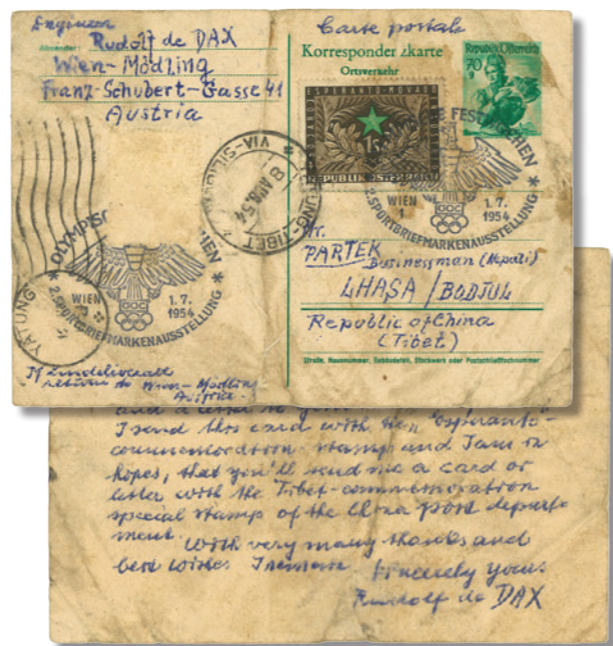 Engineer
Carte postale
Absender:
Rudolf de DAX
Wien-Mödling
Franz-Schubert-Gasse 41
Austria
Korrespondenzkarte
Ortsverkehr
Republik Österreich
70
g
ESPERANTO-MOVADO
1 S
REPUBLIK ÖSTERREICH
VIA-SILI
8 AUG. 54
TIBET
WIEN
1
1.7.
1954
2. SPORTBRIEFMARKENAUSSTELLUNG
WIEN
1.7.
1954
2. SPORTBRIEFMARKENAUSSTELLUNG
YATUNG
Mr.
PARTEK
Businessman (Nepali)
LHASA / BODJUL
Republic of China
(Tibet)
Straße, Hausnummer, Gebäudeteil, Stockwerk oder Postschließfachnummer
If
return to Wien-Mödling
Austria.
and a
I send this card with the "esperanto-
commemoration stamp and I am in
hopes, that you'll send me a card or
letter with the Tibet-commemoration
special stamp of the China post depart-
ment.
With very many thanks and
best wishes I remain sincerely yours
Rudolf de DAX